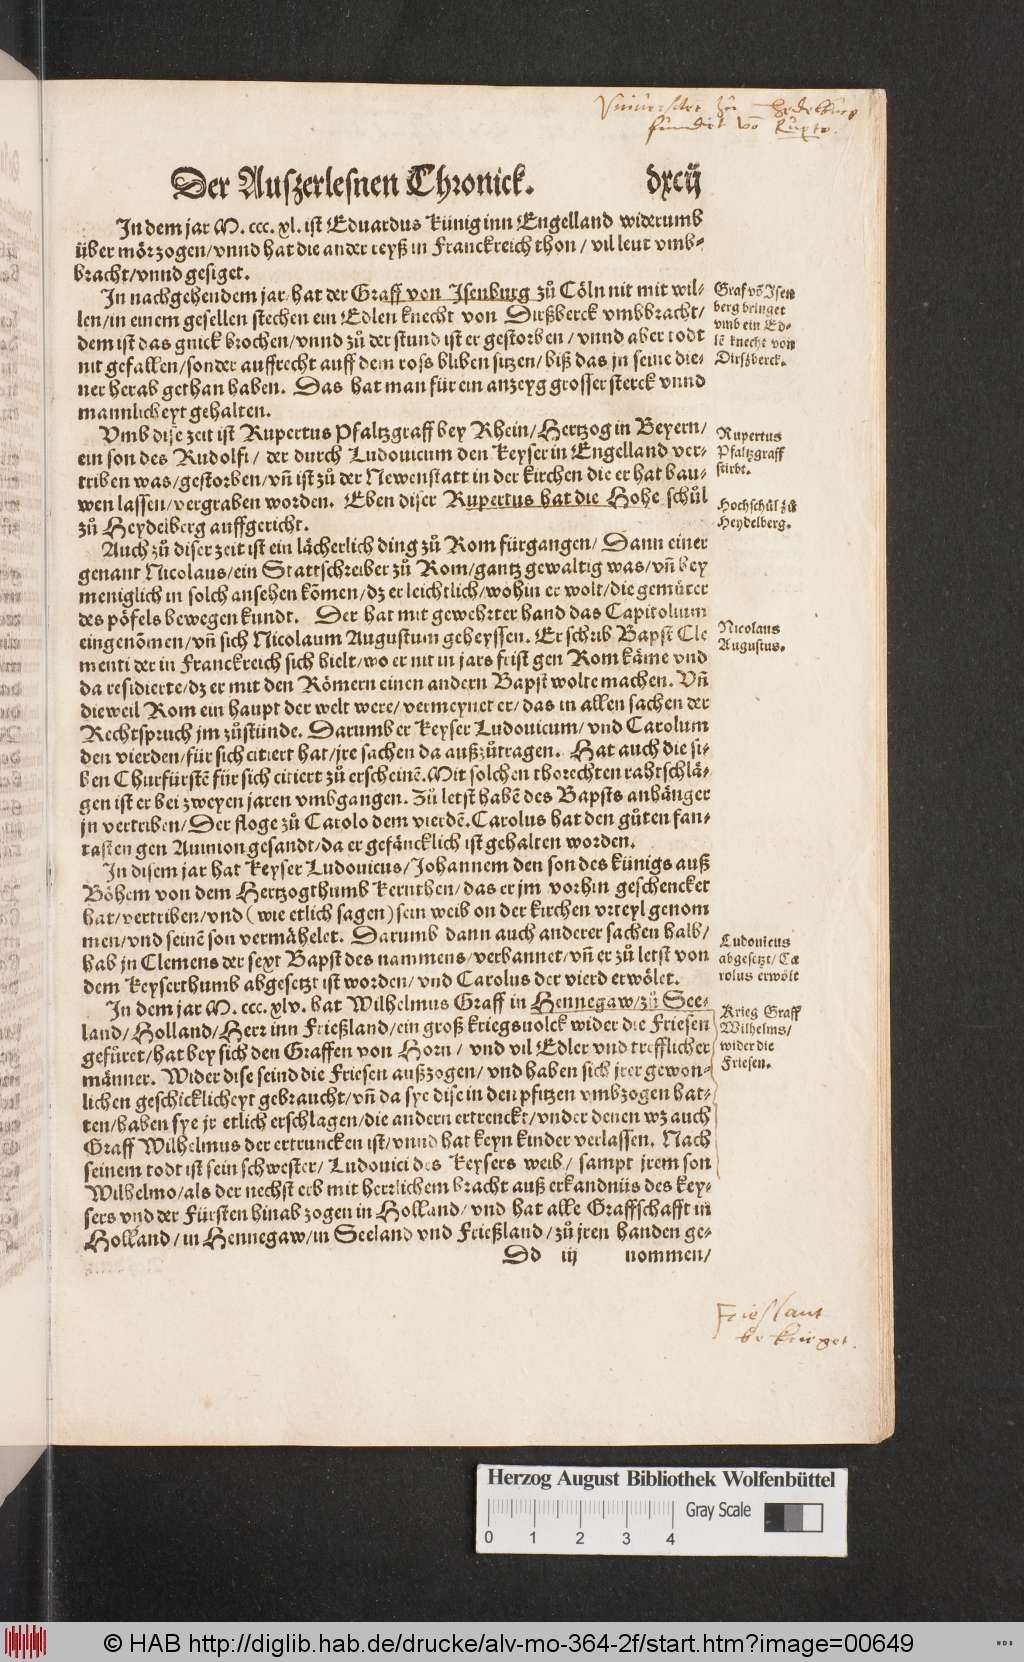 Universitet zů Hedelburg
fundiert vō Rupto.
Der Auszerlesnen Chronick. dxcij
In dem jar M. ccc. xl. ist Eduardus Künig inn Engelland widerumb
über mör zogen/vnnd hat die ander reyß in Franckreich thon/ vil leut vmb-
bracht/vnnd gesiget.
In nachgehendem jar hat der Graff von Isenburg zů Cöln nit mit wil-
len/in einem gesellen stechen ein Edlen knecht von Dirßberck vmbbracht/
dem ist das gnick brochen/vnnd zů der stund ist er gestorben/ vnnd aber todt
nit gefallen/sonder auffrecht auff dem ross bliben sitzen/ biß das jn seine die-
ner herab gethan haben. Das hat man für ein anzeyg grosser sterck vnnd
mannlicheyt gehalten.
Graf vō Isen
berg bringet
vmb ein Ed-
lē knecht von
Dirszberck.
Vmb dise zeit ist Rupertus Pfaltzgraff bey Rhein/Hertzog in Beyern/
ein son des Rudolfi/ der durch Ludouicum den Keyser in Engelland ver-
triben was/gestorben/vn̄ ist zů der Newenstatt in der kirchen die er hat bau-
wen lassen/vergraben worden. Eben diser Rupertus hat die Hohe schůl
zů Heydelberg auffgericht.
Rupertus
Pfaltzgraff
stirbt.
Hochschůl zů
Heydelberg.
Auch zů diser zeit ist ein lächerlich ding zů Rom fürgangen/ Dann einer
genant Nicolaus/ein Stattschreiber zů Rom/gantz gewaltig was/vn̄ bey
meniglich in solch ansehen kōmen/dz er leichtlich/wohin er wolt/die gemüter
des pöfels bewegen kundt. Der hat mit gewehrter hand das Capitolium
eingenōmen/vn̄ sich Nicolaum Augustum geheyssen. Er schrib Bapst Cle
menti der in Franckreich sich hielt/wo er nit in jars frist gen Rom käme vnd
da residierte/dz er mit den Römern einen andern Bapst wolte machen. Vn̄
dieweil Rom ein haupt der welt were/ vermeynet er/das in allen sachen der
Rechtspruch jm zůstünde. Darumb er Keyser Ludouicum/ vnd Carolum
den vierden/für sich citiert hat/jre sachen da außzůtragen. Hat auch die si-
ben Churfürstē für sich citiert zů erscheinē. Mit solchen thorechten rahtschlä-
gen ist er bei zweyen jaren vmbgangen. Zů letst habē des Bapsts anhänger
jn vertriben/Der floge zů Carolo dem vierdē. Carolus hat den gůten fan-
tasten gen Auinion gesandt/da er gefäncklich ist gehalten worden.
Nicolaus
Augustus.
In disem jar hat Keyser Ludouicus/Johannem den son des künigs auß
Böhem von dem Hertzogthumb Kernthen/das er jm vorhin geschencket
hat/vertriben/vnd (wie etlich sagen) sein weib on der kirchen vrteyl genom
men/vnd seinē son vermähelet. Darumb dann auch anderer sachen halb/
hab jn Clemens der sext Bapst des nammens/verbannet/vn̄ er zů letst von
dem Keyserthumb abgesetzt ist worden/ vnd Carolus der vierd erwölet.
Ludouicus
abgesetzt/Ca
rolus erwölt
In dem jar M. ccc. xlv. hat Wilhelmus Graff in Hennegaw/zů See-
land/Holland/Herr inn Frießland/ein groß kriegsuolck wider die Friesen
gefüret/hat bey sich den Graffen von Horn/ vnd vil Edler vnd trefflicher
männer. Wider dise seind die Friesen außzogen/ vnd haben sich jrer gewon-
lichen geschicklicheyt gebraucht/vn̄ da sye dise in den pfitzen vmbzogen hat-
ten/haben sye jr etlich erschlagen/die andern ertrenckt/vnder denen wz auch
Graff Wilhelmus der ertruncken ist/vnnd hat keyn kinder verlassen. Nach
seinem todt ist sein schwester/ Ludouici des Keysers weib/ sampt jrem son
Wilhelmo/als der nechst erb mit herrlichem bracht auß erkandnüs des key-
sers vnd der Fürsten hinab zogen in Holland/ vnd hat alle Graffschafft in
Holland/in Hennegaw/in Seeland vnd Frießland/zů jren handen ge-
Krieg Graff
Wilhelms/
wider die
Friesen.
Dd iij nommen/
Frieslant
bekrieget.
Herzog August Bibliothek Wolfenbüttel
Gray Scale
0 1 2 3 4
© HAB http://diglib.hab.de/drucke/alv-mo-364-2f/start.htm?image=00649